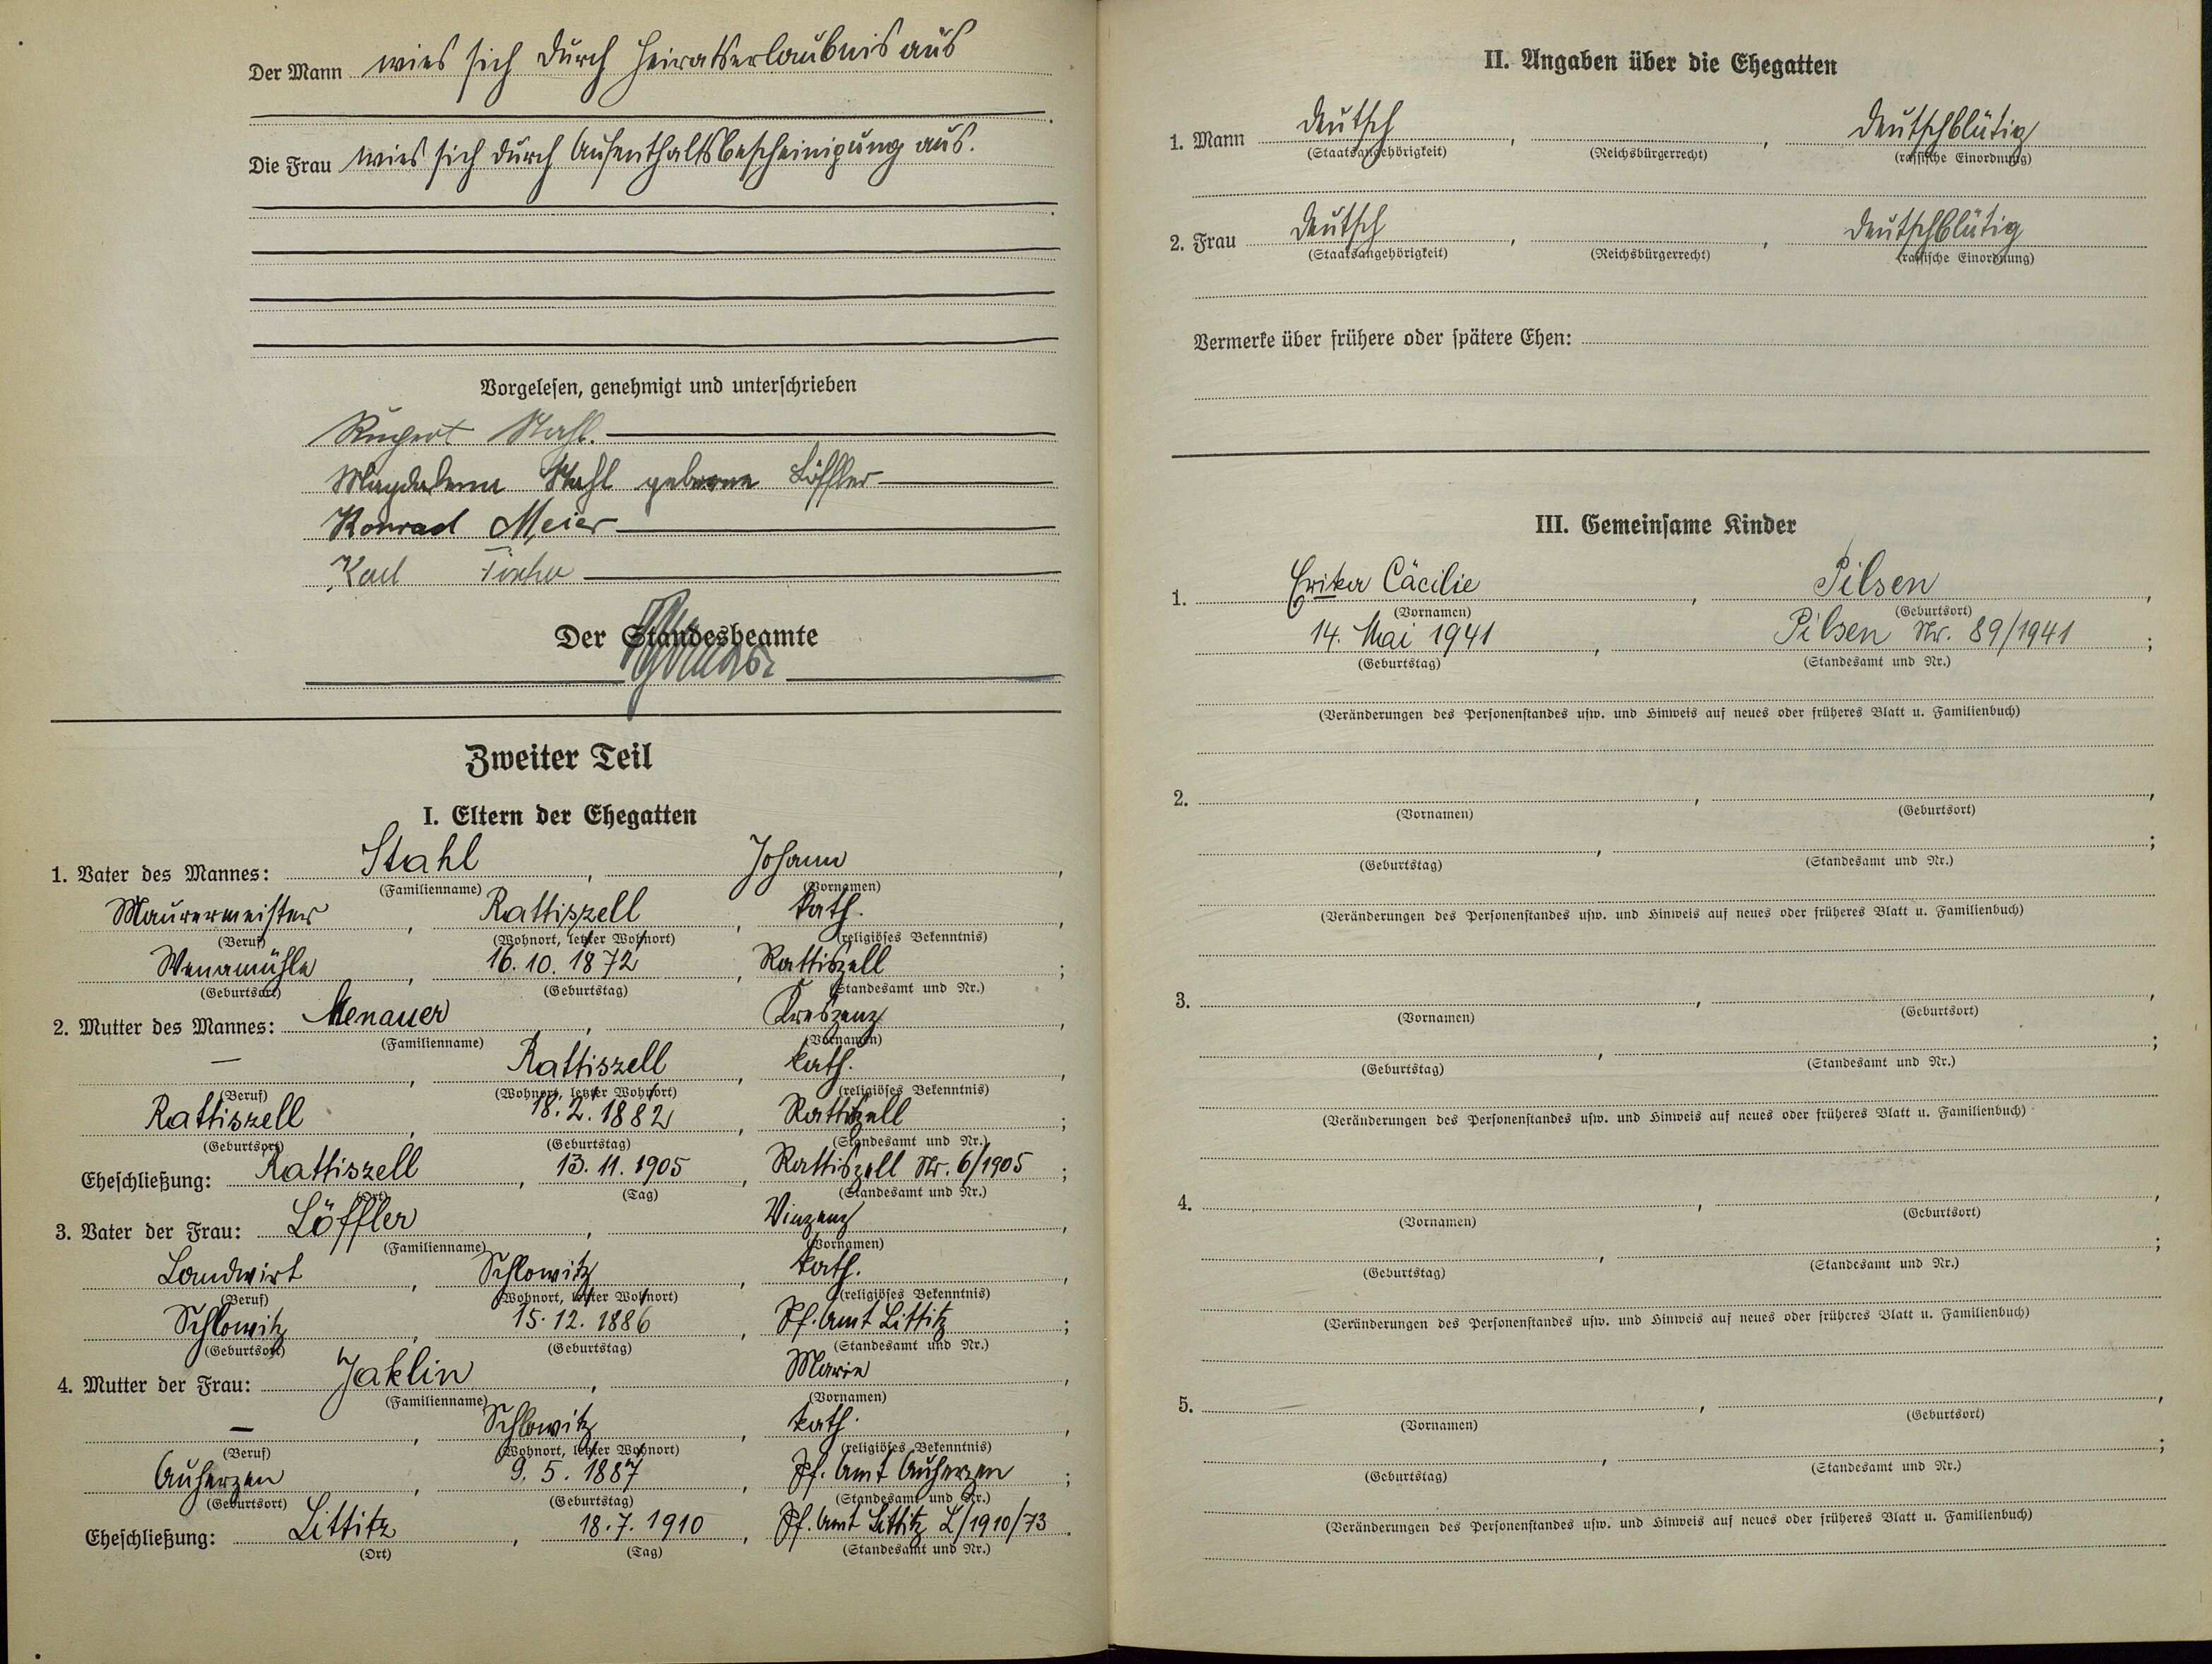 Der Mann wies sich durch Heiratserlaubnis aus
Die Frau wies sich durch Aufenthaltsbescheinigung aus.
Vorgelesen, genehmigt und unterschrieben
Stahl.
Magdalena Stahl geborene Löffler
Konrad Meier
Karl
Der Standesbeamte
Zweiter Teil
I. Eltern der Ehegatten
1. Vater des Mannes: Stahl, Johann,
(Familienname) (Vornamen)
Maurermeister, Rattiszell, kath.,
(Beruf) (Wohnort, letzter Wohnort) (religiöses Bekenntnis)
16.10.1872, Rattiszell;
(Geburtsort) (Geburtstag) (Standesamt und Nr.)
2. Mutter des Mannes: Menauer, Kreszenz,
(Familienname) (Vornamen)
—, Rattiszell, kath.,
(Beruf) (Wohnort, letzter Wohnort) (religiöses Bekenntnis)
Rattiszell, 18.2.1882, Rattiszell;
(Geburtsort) (Geburtstag) (Standesamt und Nr.)
Eheschließung: Rattiszell, 13.11.1905, Rattiszell Nr. 6/1905;
(Ort) (Tag) (Standesamt und Nr.)
3. Vater der Frau: Löffler, Vinzenz,
(Familienname) (Vornamen)
Landwirt, Schlowitz, kath.,
(Beruf) (Wohnort, letzter Wohnort) (religiöses Bekenntnis)
Schlowitz, 15.12.1886, Pf. Amt Littitz;
(Geburtsort) (Geburtstag) (Standesamt und Nr.)
4. Mutter der Frau: Jaklin, Marie,
(Familienname) (Vornamen)
—, Schlowitz, kath.,
(Beruf) (Wohnort, letzter Wohnort) (religiöses Bekenntnis)
Auherzen, 9.5.1887, Pf. Amt Auherzen;
(Geburtsort) (Geburtstag) (Standesamt und Nr.)
Eheschließung: Littitz, 18.7.1910, Pf. Amt Littitz L/1910/73.
(Ort) (Tag) (Standesamt und Nr.)
II. Angaben über die Ehegatten
1. Mann deutsch, , deutschblütig
(Staatsangehörigkeit) (Reichsbürgerrecht) (rassische Einordnung)
2. Frau deutsch, , deutschblütig
(Staatsangehörigkeit) (Reichsbürgerrecht) (rassische Einordnung)
Vermerke über frühere oder spätere Ehen:
III. Gemeinsame Kinder
1. Erika Cäcilie, Pilsen,
(Vornamen) (Geburtsort)
14. Mai 1941, Pilsen Nr. 89/1941;
(Geburtstag) (Standesamt und Nr.)
(Veränderungen des Personenstandes usw. und Hinweis auf neues oder früheres Blatt u. Familienbuch)
2. , ,
(Vornamen) (Geburtsort)
, ;
(Geburtstag) (Standesamt und Nr.)
(Veränderungen des Personenstandes usw. und Hinweis auf neues oder früheres Blatt u. Familienbuch)
3. , ,
(Vornamen) (Geburtsort)
, ;
(Geburtstag) (Standesamt und Nr.)
(Veränderungen des Personenstandes usw. und Hinweis auf neues oder früheres Blatt u. Familienbuch)
4. , ,
(Vornamen) (Geburtsort)
, ;
(Geburtstag) (Standesamt und Nr.)
(Veränderungen des Personenstandes usw. und Hinweis auf neues oder früheres Blatt u. Familienbuch)
5. , ,
(Vornamen) (Geburtsort)
, ;
(Geburtstag) (Standesamt und Nr.)
(Veränderungen des Personenstandes usw. und Hinweis auf neues oder früheres Blatt u. Familienbuch)